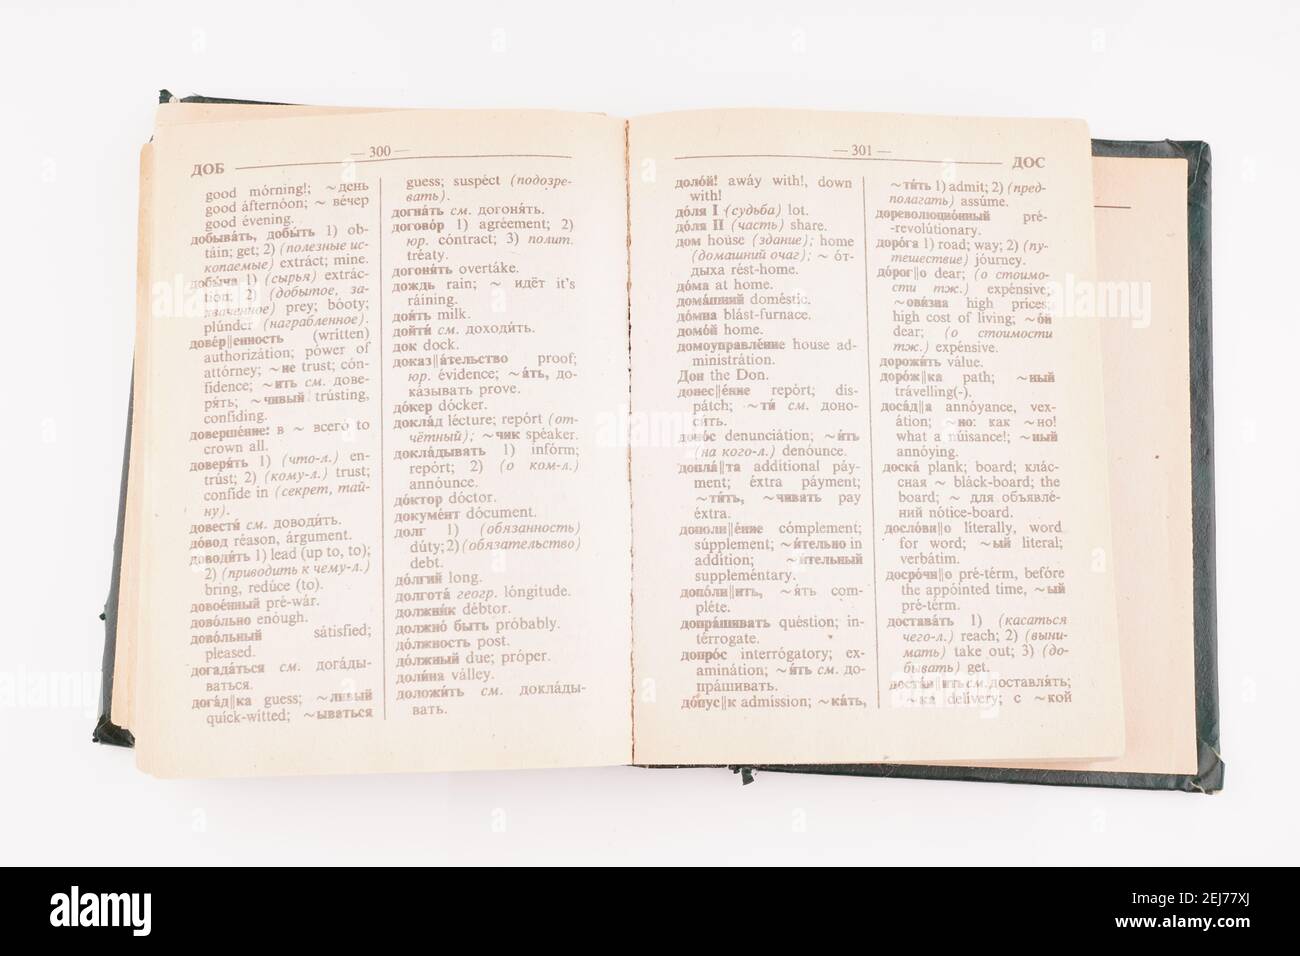 — 300 —
ДОБ
good mórning!; ~день
good áfternóon; ~ вéчер
good évening.
добывáть, добы́ть 1) ob-
táin; get; 2) (полезные ис-
копаемые) extráct; mine.
добы́ча 1) (сырья) extrác-
tion; 2) (добытое, за-
хваченное) prey; bóoty;
plúnder (награбленное).
довéр||енность (written)
authorizátion; pówer of
attórney; ~ие trust; cón-
fidence; ~ить см. дове-
ря́ть; ~чивый trústing,
confiding.
довершéние: в ~ всегó to
crown all.
доверя́ть 1) (что-л.) en-
trúst; 2) (кому-л.) trust;
confide in (секрет, тай-
ну).
довести́ см. доводи́ть.
дóвод réason, árgument.
доводи́ть 1) lead (up to, to);
2) (приводить к чему-л.)
bring, redúce (to).
довоéнный pré-wár.
довóльно enóugh.
довóльный sátisfied;
pleased.
догадáться см. догáды-
ваться.
догáд||ка guess; ~ливый
quíck-witted; ~ываться
guess; suspéct (подозре-
вать).
догнáть см. догоня́ть.
договóр 1) agréement; 2)
юр. cóntract; 3) полит.
tréaty.
догоня́ть overtáke.
дождь rain; ~ идёт it's
ráining.
дои́ть milk.
дойти́ см. доходи́ть.
док dock.
доказ||áтельство proof;
юр. évidence; ~áть, до-
кáзывать prove.
дóкер dócker.
доклáд lécture; repórt (от-
чётный); ~чик spéaker.
доклáдывать 1) infórm;
repórt; 2) (о ком-л.)
annóunce.
дóктор dóctor.
докумéнт dócument.
долг 1) (обязанность)
dúty; 2) (обязательство)
debt.
дóлгий long.
долготá геогр. lóngitude.
должни́к débtor.
должнó быть próbably.
дóлжность post.
дóлжный due; próper.
доли́на válley.
доложи́ть см. доклáды-
вать.
— 301 —
ДОС
долóй! awáy with!, down
with!
дóля I (судьба) lot.
дóля II (часть) share.
дом house (здание); home
(домашний очаг); ~ óт-
дыха rést-home.
дóма at home.
домáшний doméstic.
дóмна blást-furnace.
домóй home.
домоуправлéние house ad-
ministrátion.
Дон the Don.
донес||éние repórt; dis-
pátch; ~ти́ см. доно-
си́ть.
донóс denunciátion; ~и́ть
(на кого-л.) denóunce.
доплá||та additional páy-
ment; éxtra páyment;
~ти́ть, ~чивать pay
éxtra.
дополн||éние cómplement;
súpplement; ~и́тельно in
addítion; ~и́тельный
suppleméntary.
допóлн||ить, ~я́ть com-
pléte.
допрáшивать quéstion; in-
térrogate.
допрóс interrógatory; ex-
aminátion; ~и́ть см. до-
прáшивать.
дóпус||к admission; ~кáть,
~ти́ть 1) admit; 2) (пред-
полагать) assúme.
дореволюциóнный pré-
-revolútionary.
дорóга 1) road; way; 2) (пу-
тешествие) jóurney.
дóрог||о dear; (о стоимо-
сти тж.) expénsive;
~ови́зна high prices;
high cost of living; ~óй
dear; (о стоимости
тж.) expénsive.
дорожи́ть válue.
дорóж||ка path; ~ный
trávelling(-).
досáд||а annóyance, vex-
átion; ~но: как ~но!
what a núisance!; ~ный
annóying.
доскá plank; board; клáс-
сная ~ bláck-board; the
board; ~ для объявлé-
ний nótice-board.
дослóвн||о literally, word
for word; ~ый literal;
verbátim.
досрóчн||о pré-térm, befóre
the appóinted time, ~ый
pré-térm.
доставáть 1) (касаться
чего-л.) reach; 2) (выни-
мать) take out; 3) (до-
бывать) get.
достáв||ить см. доставля́ть;
~ка delivery; с ~кой
alamy
alamy
Image ID: 2EJ77XJ
www.alamy.com